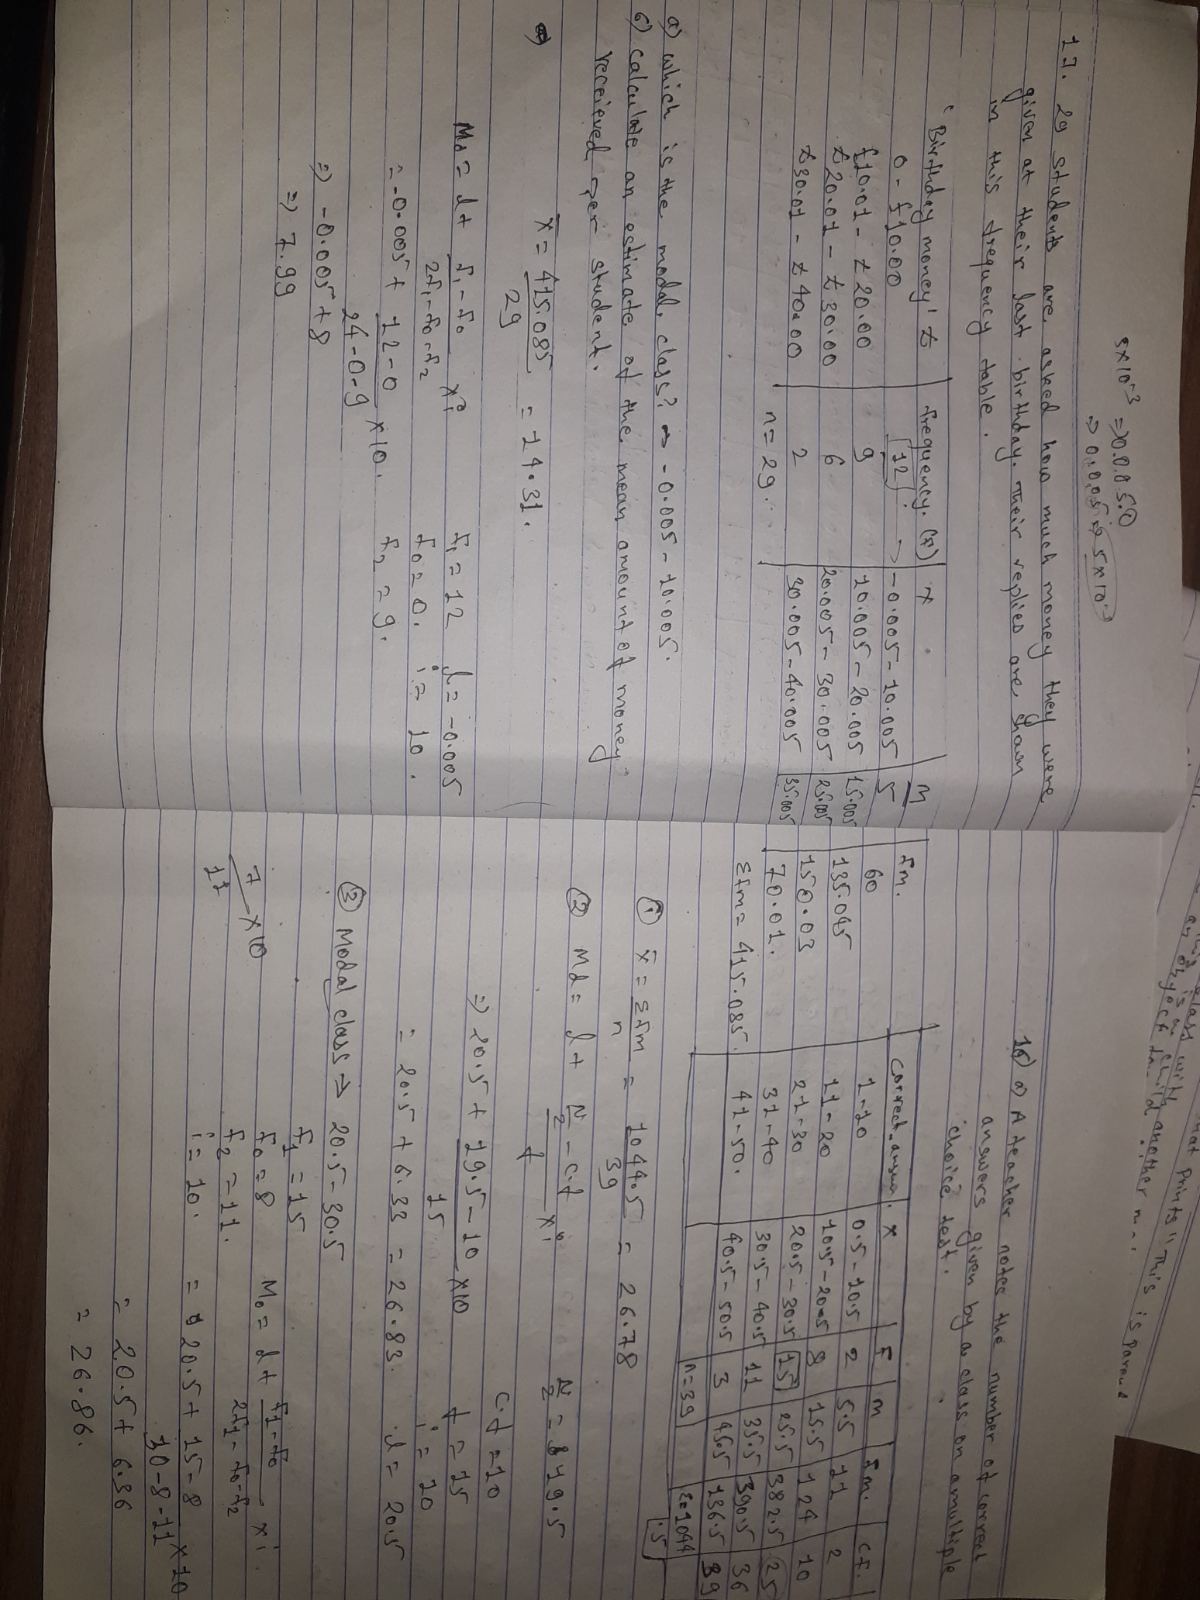 5×10⁻³ ⇒ 0.005.0
⇒ 0.005 ⇒ 5×10⁻³
17. 29 students are asked how much money they were
given at their last birthday. Their replies are shown
in this frequency table.
Birthday money' £ | frequency. (f) | x | m | fm.
0 - £10.00 | 12 → | -0.005 - 10.005 | 5 | 60
£10.01 - £20.00 | 9 | 10.005 - 20.005 | 15.005 | 135.045
£20.01 - £30.00 | 6 | 20.005 - 30.005 | 25.005 | 150.03
£30.01 - £40.00 | 2 | 30.005 - 40.005 | 35.005 | 70.01.
n = 29. Σfm = 415.085.
a) which is the modal class? → -0.005 - 10.005.
b) calculate an estimate of the mean amount of money
receieved per student.
x̄ = 415.085 / 29 = 14.31.
Mo = l + f₁-f₀ / 2f₁-f₀-f₂ × i
f₁ = 12 l = -0.005
f₀ = 0. i = 10.
f₂ = 9.
= -0.005 + 12-0 / 24-0-9 × 10.
⇒ -0.005 + 8
⇒ 7.99
This is
another
18) a) A teacher notes the number of correct
answers given by a class on a multiple
choice test.
correct answer. | x | f | m | fm. | cf.
1-10 | 0.5 - 10.5 | 2 | 5.5 | 11 | 2
11-20 | 10.5 - 20.5 | 8 | 15.5 | 124 | 10
21-30 | 20.5 - 30.5 | 15 | 25.5 | 382.5 | 25
31-40 | 30.5 - 40.5 | 11 | 35.5 | 390.5 | 36
41-50. | 40.5 - 50.5 | 3 | 45.5 | 136.5 | 39
n = 39 Σ=1044.5
① x̄ = Σfm / n = 1044.5 / 39 = 26.78
② Md = l + N/2 - c.f / f × i
N/2 = 19.5
c.f = 10
⇒ 20.5 + 19.5 - 10 / 15 × 10
f = 15
i = 10
= 20.5 + 6.33 = 26.83. l = 20.5
③ Modal class → 20.5 - 30.5
f₁ = 15
f₀ = 8 Mo = l + f₁-f₀ / 2f₁-f₀-f₂ × i.
f₂ = 11.
7 / 11 × 10
i = 10. = 20.5 + 15-8 / 30-8-11 × 10
= 20.5 + 6.36
= 26.86.